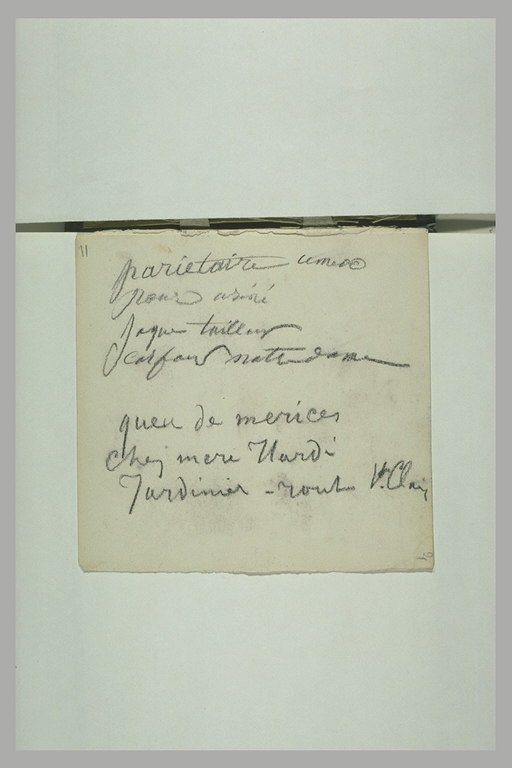 11
parietaire
pour
jaque tailleur
Carfour notredame
queu de merices
chez mere Hardi
Jardinier - rout St. Clair